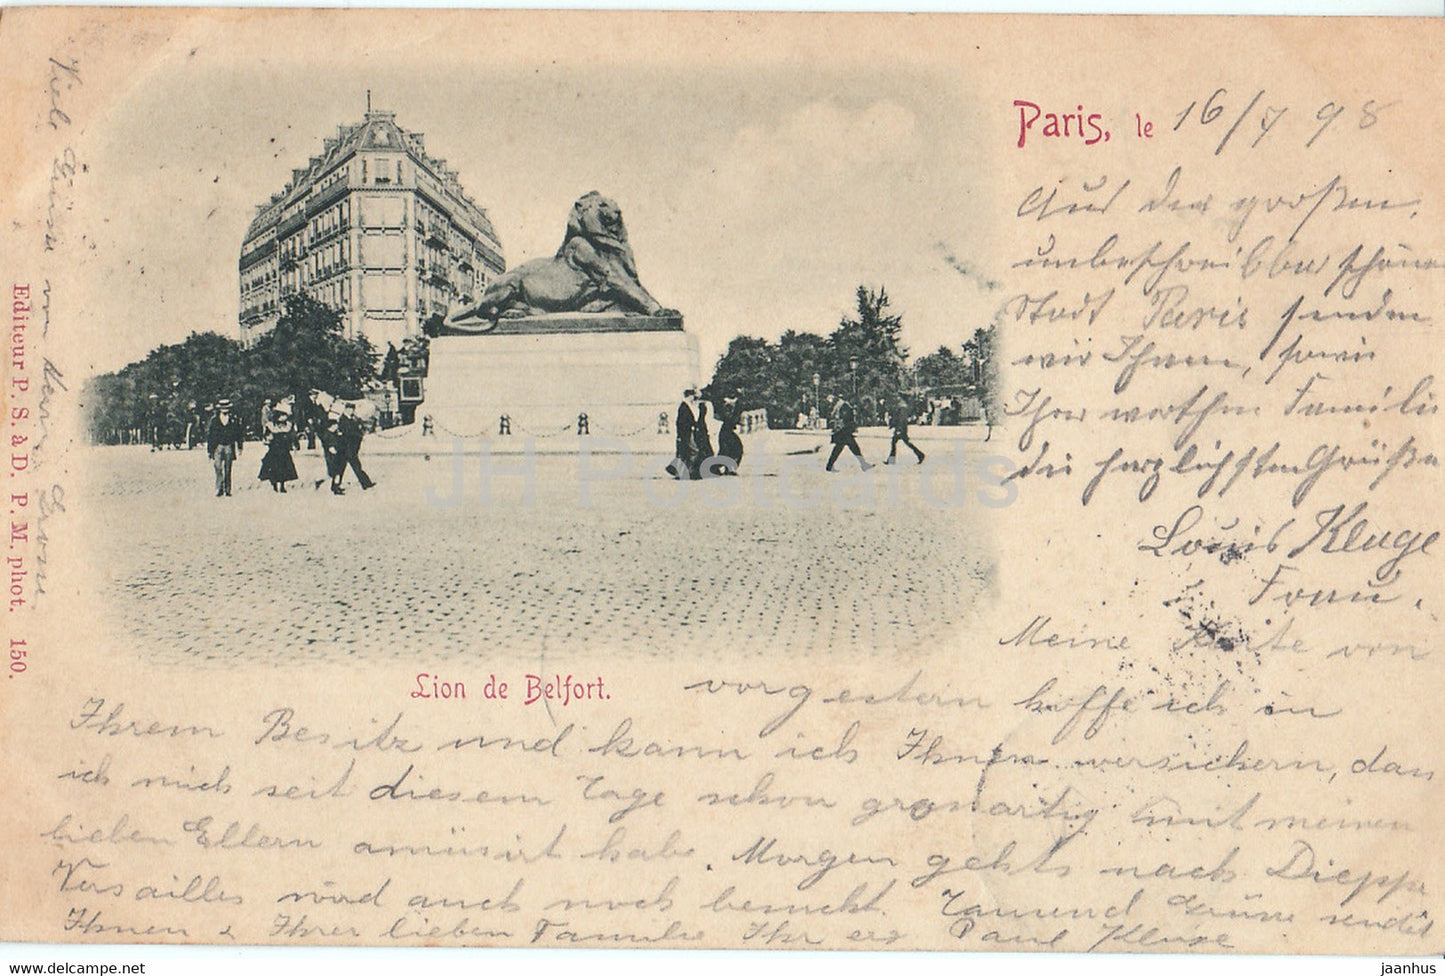 Paris, le 16/7 98
Aus der großen,
unbeschreibbar schönen
Stadt Paris senden
wir Ihnen, sowie
Ihrer werthen Familie
die herzlichsten Grüße
Louis Kluge
Frau.
Meine Karte von
Lion de Belfort.
vorgestern hoffe ich in
Ihrem Besitz und kann ich Ihnen versichern, das
ich mich seit diesem Tage schon großartig mit meinen
lieben Eltern amüsirt habe. Morgen gehts nach Dieppe
Versailles wird auch noch besucht. Tausend Grüsse sendet
Ihnen & Ihrer lieben Familie Ihr erg Paul Kluge
Viele Grüsse von
Editeur P. S. à D. P. M. phot. 150.
JH Postcards
hip-postcard.eu
jaanhus.eu